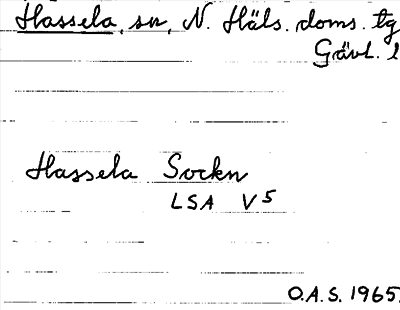 Hassela, sn, N. Häls. doms. tg
Gävl. l
Hassela Sockn
LSA V5
O.A.S. 1965.